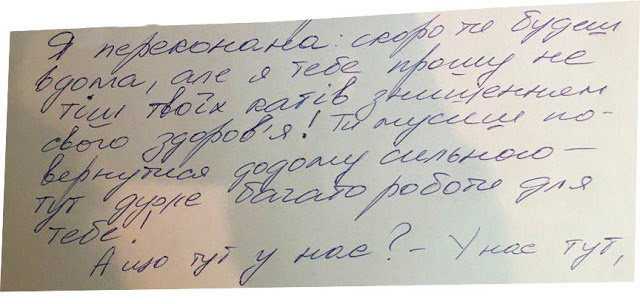 Я переконана: скоро ти будеш
вдома, але я тебе прошу не
тіш твоїх катів знищенням
свого здоров'я! Ти мусиш по-
вернутися додому сильною –
тут дуже багато роботи для
тебе!
А що тут у нас? – У нас тут,